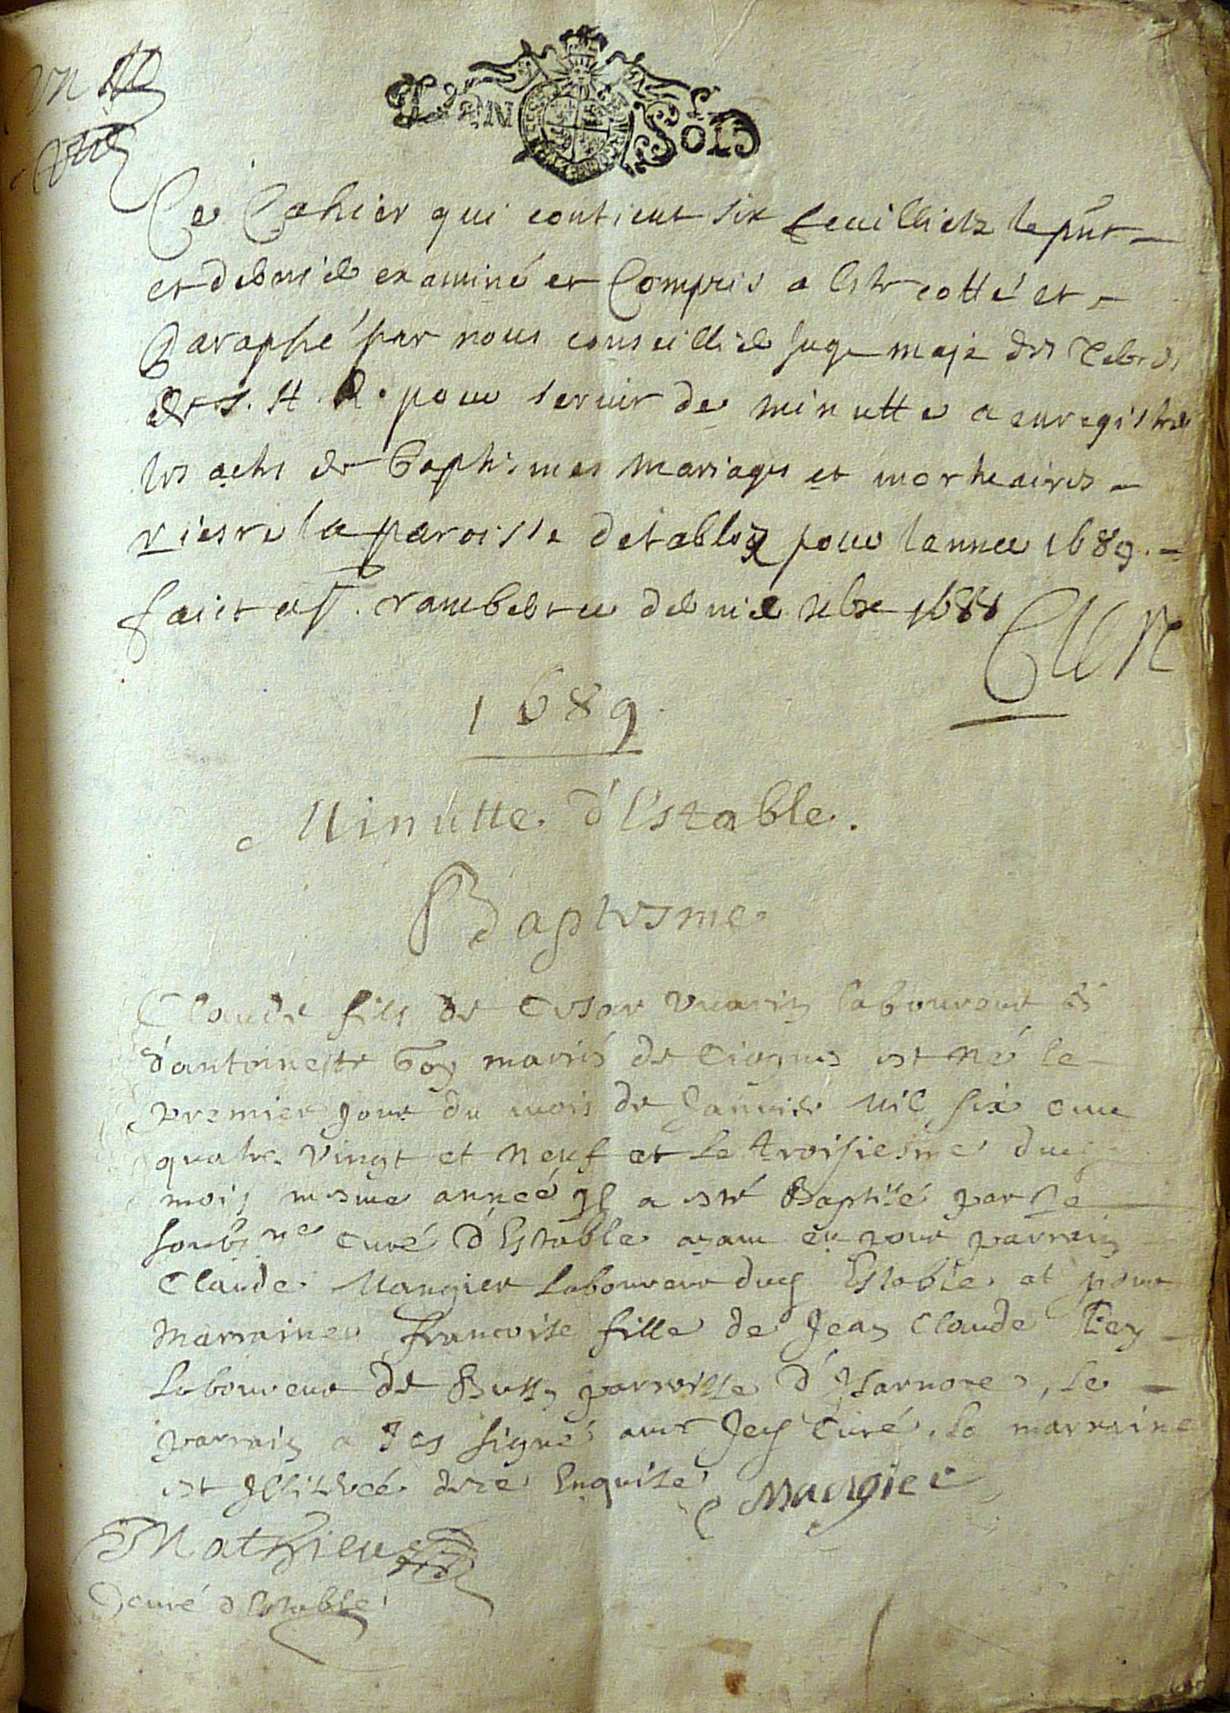 Un
Un Sols
Ce Cahier qui contient six feuillietz le pñt
et dernier examiné et Compris a esté cotté et
Paraphé par nous conseillier Juge maje des
de S. A. R. pour servir de minutte a enregistrer
les actes de Baptismes mariages et mortuaires
riesre la paroisse detablez pour lannee 1689.
faict a St. rambert ce dernier xbre 1688
1689
Minutte. d'Estable.
Baptesme.
Claude fils de Cesar Vuarin laboureur &
d'antoinette Goy mariés de est né le
premier Jour du mois de Janvier Mil six cent
quatre Vingt et Neuf et le troisiesme dud
mois mesme année Il a esté Baptisé par Je
soubs ne Curé d'Estable ayant eu pour parrain
Claude Maugier Laboureur dud Estable et pour
Marraine francoise fille de Jean Claude Rey
Laboureur de paroisse d'Isarnore, le
parrain a Jcy signé avec Jceluy Curé, la marraine
est Illitérée de ce Enquise Maugier
Mathieu
curé d'Estable